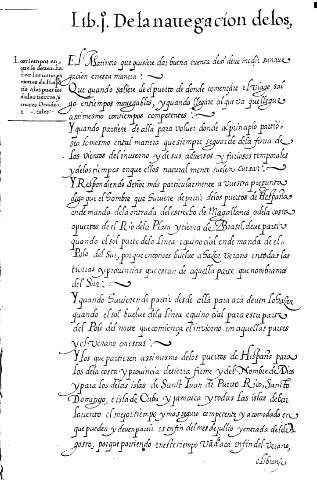 Lib. j. De la nauegacion de los,
Los tiempos en
que se deuen ha
zer las nauega
ciones de Hespa
de los puertos
de las tierras y
mares Occide
El Marinero que quisiere dar buena cuenta de si deue medir su naue
gacion en esta manera:
Que quando saliere de el puerto de donde començare el viage, sal
ga en tiempos nauegables, y quando llegare al que va que llegue
assimesmo con tiempos competentes:
Y quando partiere de alla para voluer donde al principio partio
sea lo mesmo en tal manera que siempre se guarde de la furia de
los vientos del inuierno y de sus aduersos y furiosos temporales
y de los tiempos en que ellos naturalmente suelen cursar:
Y Respondiendo Señor mas particularmente a vuestra pregunta
digo que el hombre que huuiere de partir de los puertos de Hespaña
en demanda de la entrada del estrecho de Magallanes o de la costa
o puertos de el Rio de la Plata y tierra de Brasil, deue partir
quando el sol parte de la linea equinocial en demanda de el
Polo del Sur, porque entonces buelue a hazer verano en todas las
tierras y prouincias que estan de aquella parte que nombramos
del Sur:
Y quando huuieren de partir desde alla para aca deuen lo hazer
quando el sol buelue de la linea equinocial para esta parte
del Polo del norte que comiença el inuierno en aquellas partes
y el verano en estas:
Y los que partieren assimesmo de los puertos de Hespaña para
los de la costa y prouincia de tierra firme y del Nombre de Dios
y para los de las islas de Sant Iuan de Puerto Rico, Sancto
Domingo, e isla de Cuba y Jamaica y todas las islas de bar
louento el mejor tiempo y mas seguro competente y acomodado en
que pueden y deuen partir es en fin del mes de julio y entrada del de A
gosto, porque partiendo en este tiempo van aca en fin del verano,